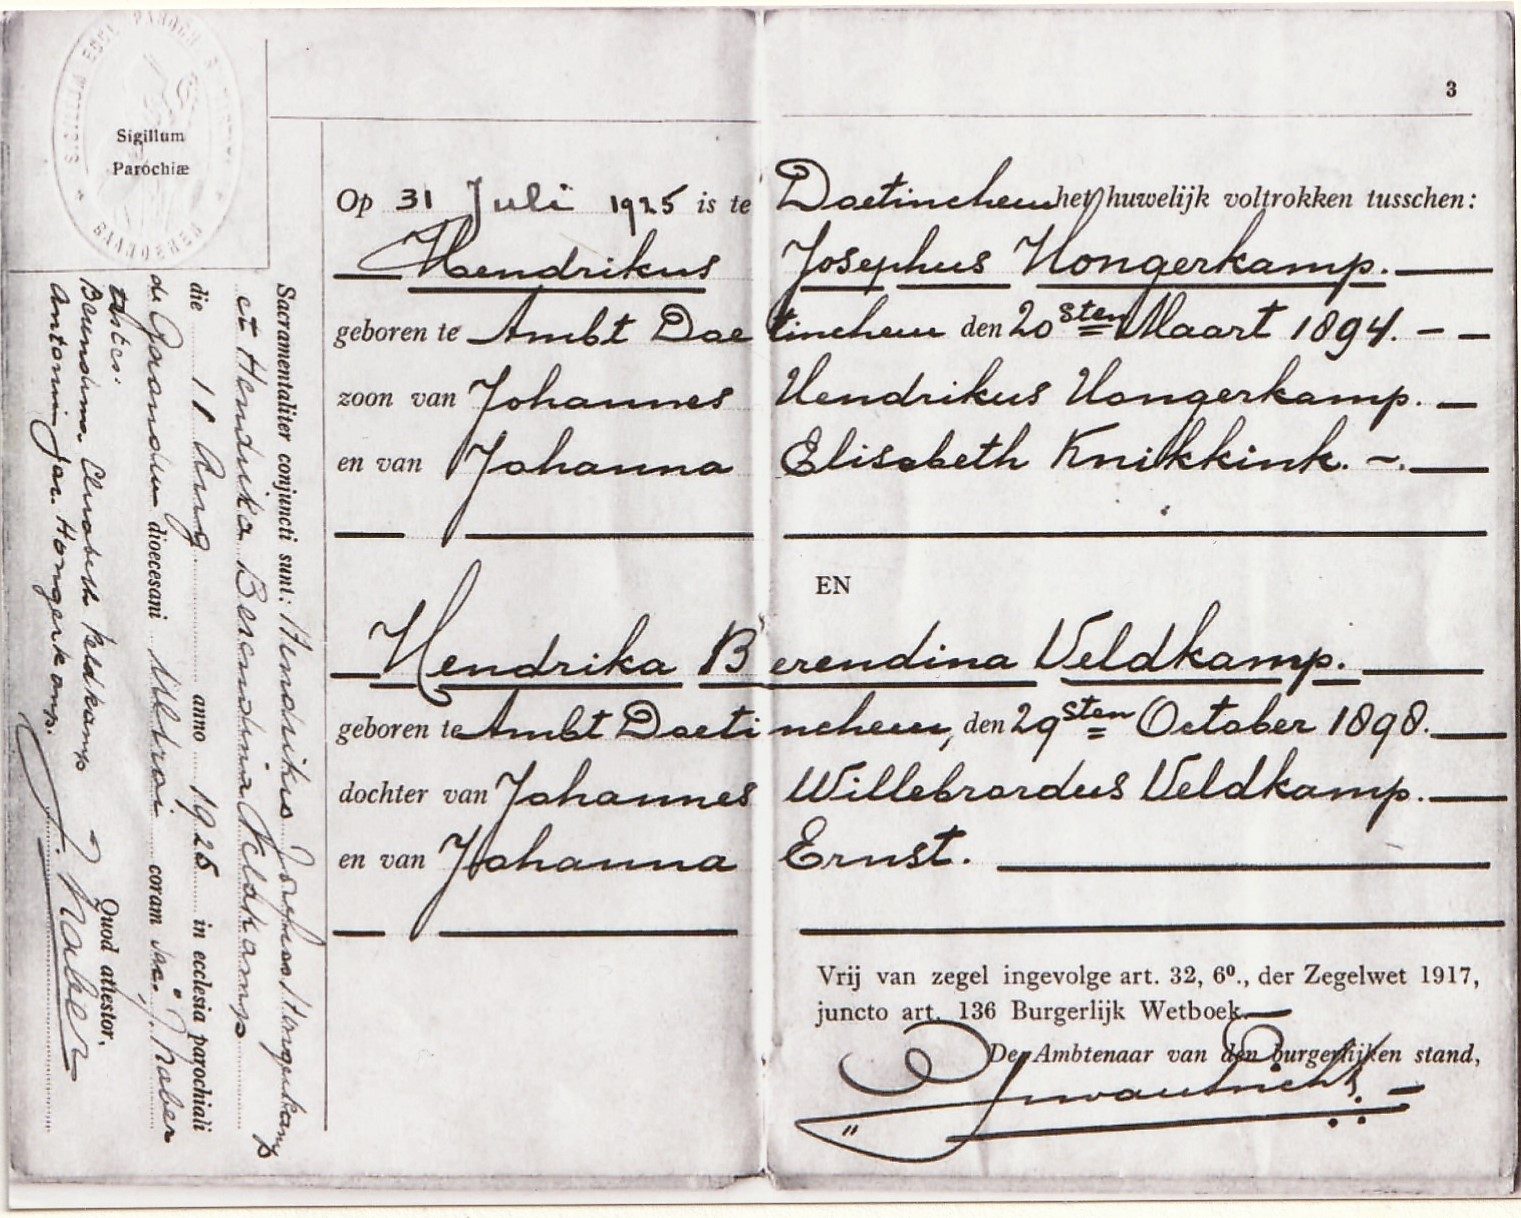 3
Sigillum
Parochiæ
Op 31 Juli 1925 is te Doetinchem het huwelijk voltrokken tusschen:
Hendrikus Josephus Hongerkamp.
geboren te Ambt Doetinchem den 20sten Maart 1894.
zoon van Johannes Hendrikus Hongerkamp.
en van Johanna Elisabeth Knikkink.
EN
Hendrika Berendina Veldkamp.
geboren te Ambt Doetinchem, den 29sten October 1898.
dochter van Johannes Willebrordus Veldkamp.
en van Johanna Ernst.
Vrij van zegel ingevolge art. 32, 6º., der Zegelwet 1917,
juncto art. 136 Burgerlijk Wetboek.
De Ambtenaar van den burgerlijken stand,
Sacramentaliter conjuncti sunt: Hendrikus Josephus Hongerkamp
et Hendrika Berendina Veldkamp
die 11 Aug. anno 1925 in ecclesia parochiali
de Gaanderen dioecesani coram J. Naber
testes:
Berendina Elisabeth Veldkamp
Quod attestor.
Antonius Joh. Hongerkamp.
J. Naber